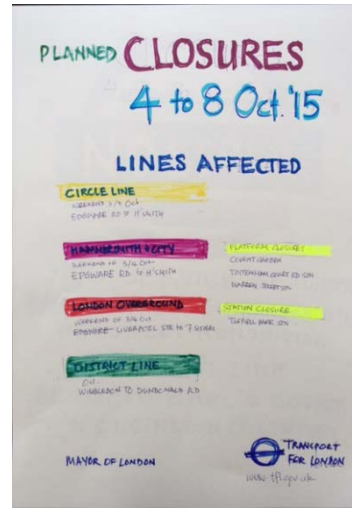 PLANNED CLOSURES
4 to 8 Oct. '15
LINES AFFECTED
CIRCLE LINE
WEEKEND 3/4 Oct
EDGWARE RD to H'SMITH
HAMMERSMITH & CITY
WEEKEND OF 3/4 Oct
EDGWARE RD. to H'SMITH
LONDON OVERGROUND
WEEKEND OF 3/4 Oct
LIVERPOOL STR to 7 SISTERS
DISTRICT LINE
WIMBLEDON TO DUNDONALD RD
PLATFORM CLOSURES
COVENT GARDEN
TOTTENHAM COURT RD STN
WARREN STREET STN
STATION CLOSURE
TUFNELL PARK STN
MAYOR OF LONDON
TRANSPORT
FOR LONDON
www.tfl.gov.uk